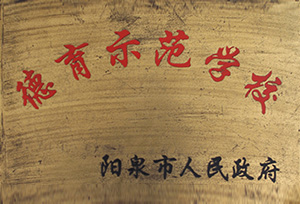 德育示范学校
阳泉市人民政府